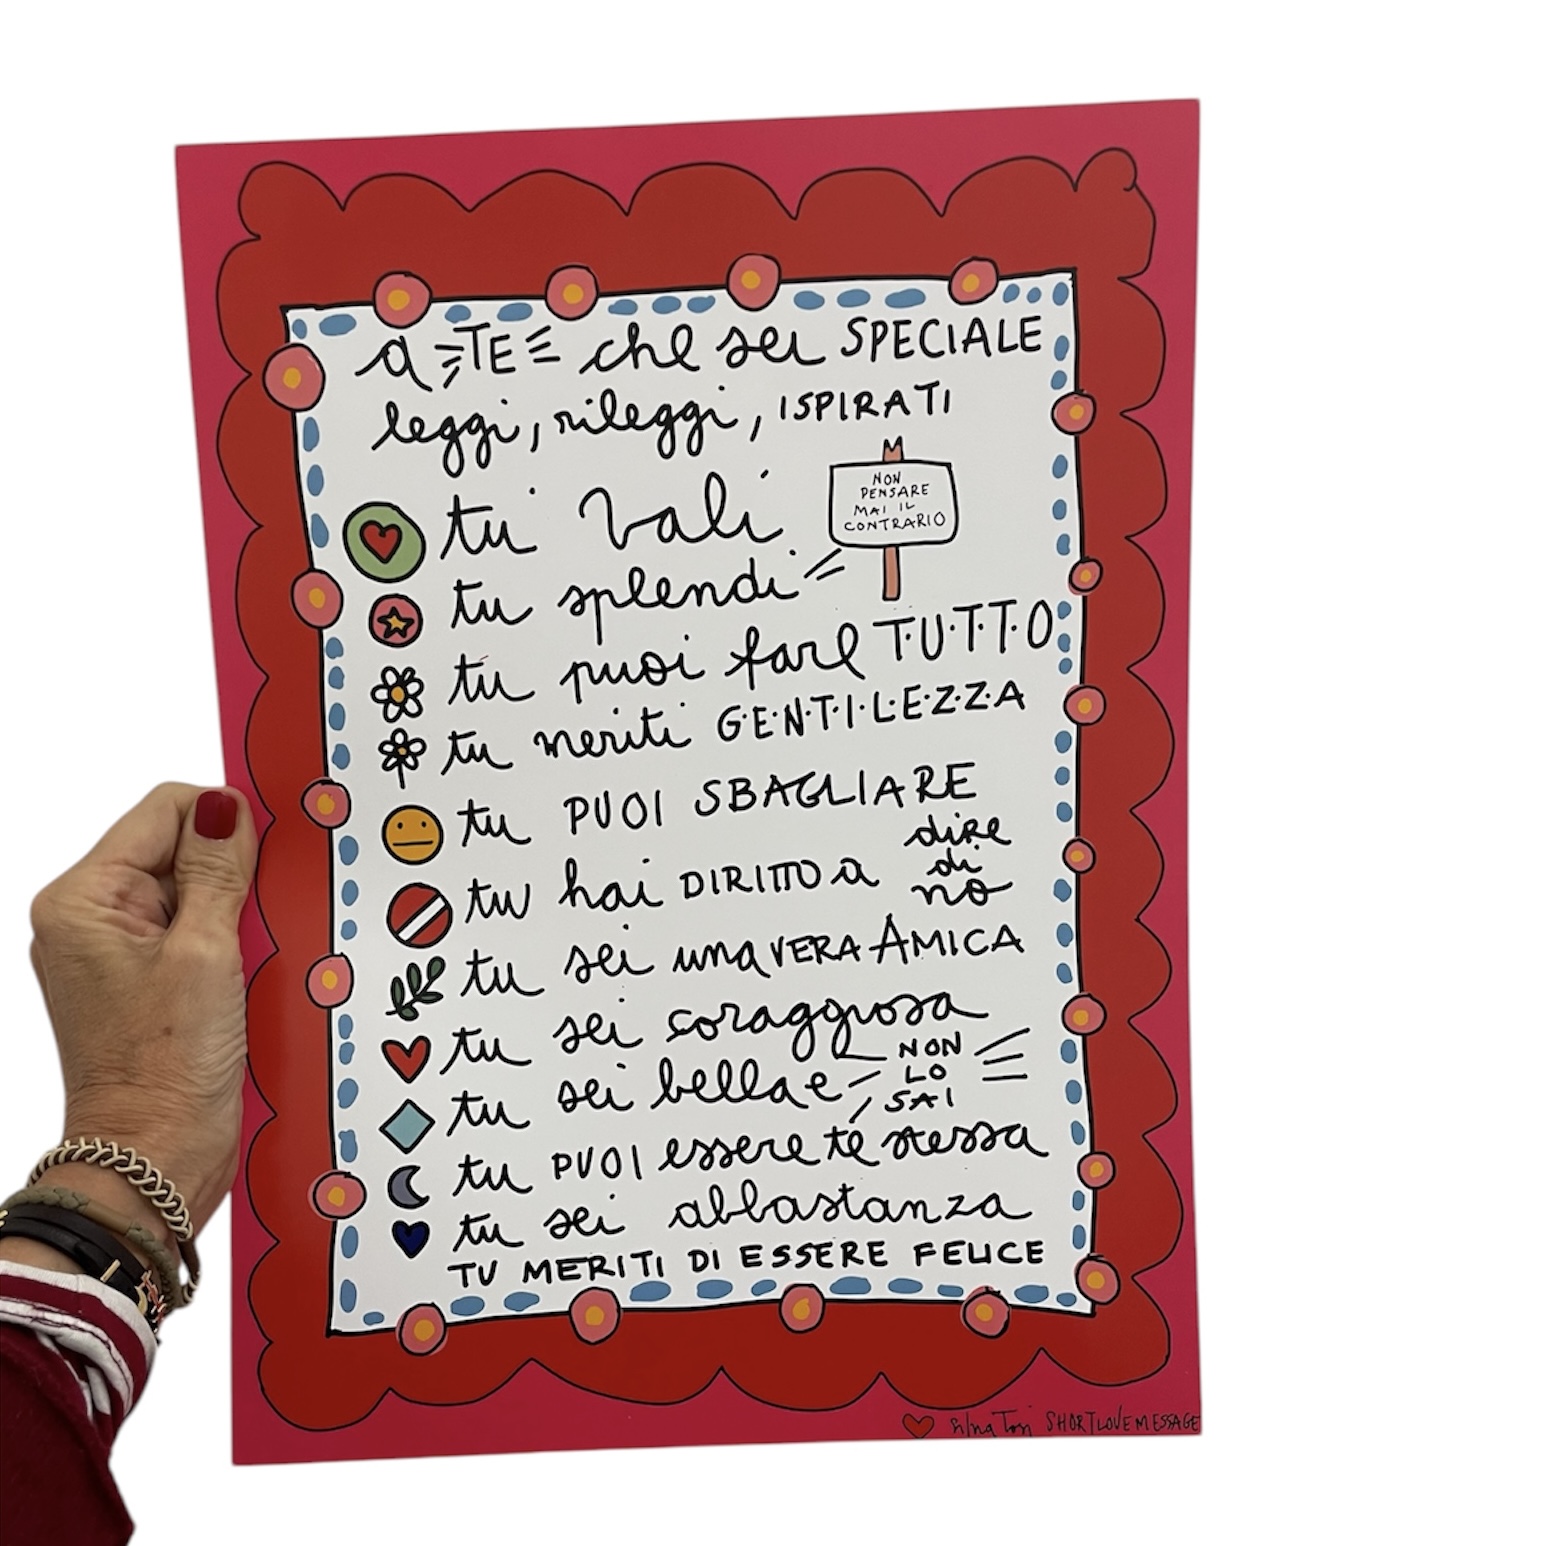 a TE che sei SPECIALE
leggi, rileggi, ISPIRATI
tu vali
NON
PENSARE
MAI IL
CONTRARIO
tu splendi
tu puoi fare T·U·T·T·O
tu meriti G·E·N·T·I·L·E·Z·Z·A
tu PUOI SBAGLIARE
tu hai DIRITTO a dire
di
no
tu sei una VERA AMICA
tu sei coraggiosa
tu sei bella e NON
LO
SAI
tu PUOI essere te stessa
tu sei abbastanza
TU MERITI DI ESSERE FELICE
silvia Tosi SHORTLOVEMESSAGE